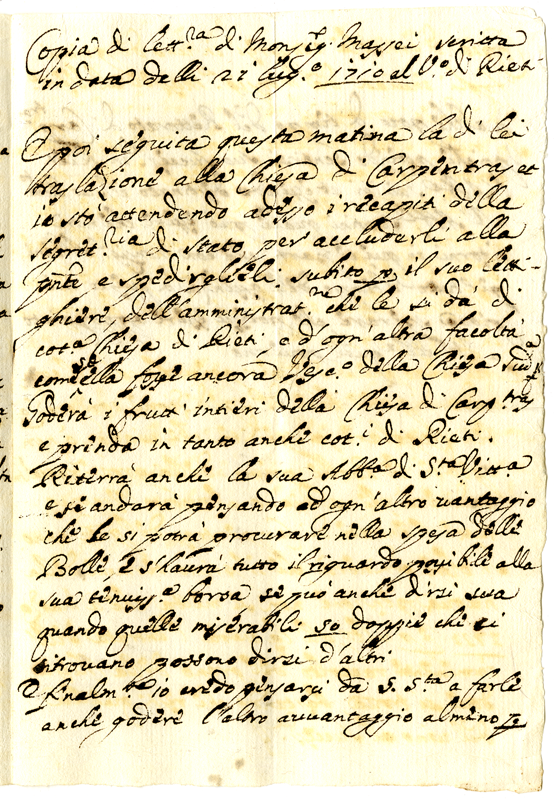 Copia di lett.ra di Monsig.r Massei scritta
in data delli 21 lug.o 1710 al V.o di Rieti
E poi seguita questa matina la di lei
traslazione alla Chiesa di Carpentras et
io stò attendendo adesso i recapiti della
segret.ria di stato per accluderli alla
pnte e spedirglieli subito p il suo letti-
ghiere, dell'amministrat.ne che le si dà di
cot.a Chiesa di Rieti e d'ogn'altra facoltà
come se ella fosse ancora Vesc.o della Chiesa sud.a
Goderà i frutti intieri della Chiesa di Carp.tras
e prenda in tanto anche cot.i di Rieti.
Riterrà anche la sua Abb.a di S.ta Vitt.a
e si andarà pensando ad ogn'altro vantaggio
che le si potrà procurare nella spesa delle
Bolle, e s'haurà tutto il riguardo possibile alla
sua tenuiss.a borsa se può anche dirsi sua
quando quelle miserabili 50 doppie che ci
ritrovano possono dirsi d'altri
E finalm.te io credo pensarsi da S. S.tà a farle
anche godere l'altro avvantaggio almeno p